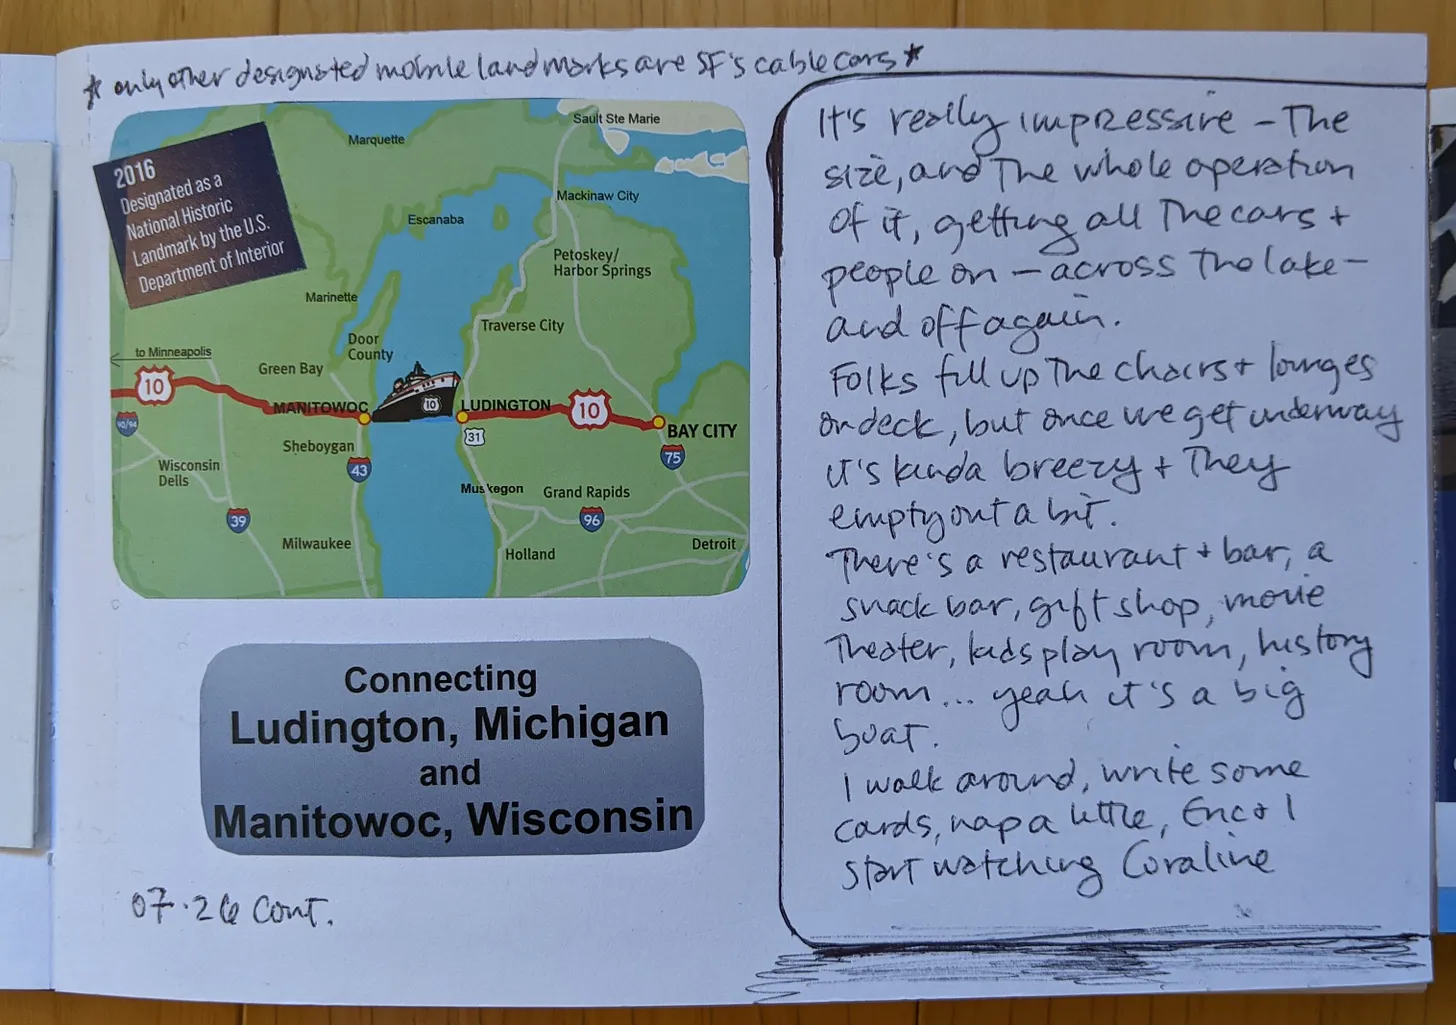 * only other designated mobile landmarks are SF's cable cars *
2016
Designated as a
National Historic
Landmark by the U.S.
Department of Interior
Marquette
Sault Ste Marie
Mackinaw City
Escanaba
Petoskey/
Harbor Springs
Marinette
Traverse City
Door
County
to Minneapolis
Green Bay
10
MANITOWOC
10
LUDINGTON
10
BAY CITY
90/94
31
75
Sheboygan
43
Wisconsin
Dells
Muskegon
Grand Rapids
39
96
Milwaukee
Holland
Detroit
Connecting
Ludington, Michigan
and
Manitowoc, Wisconsin
07.26 cont.
It's really impressive - The
size, and The whole operation
of it, getting all The cars +
people on - across The lake -
and off again.
Folks fill up The chairs + lounges
on deck, but once we get underway
it's kinda breezy + They
empty out a bit.
There's a restaurant + bar, a
snack bar, gift shop, movie
Theater, kids play room, history
room... yeah it's a big
boat.
I walk around, write some
cards, nap a little, Eric + I
start watching Coraline